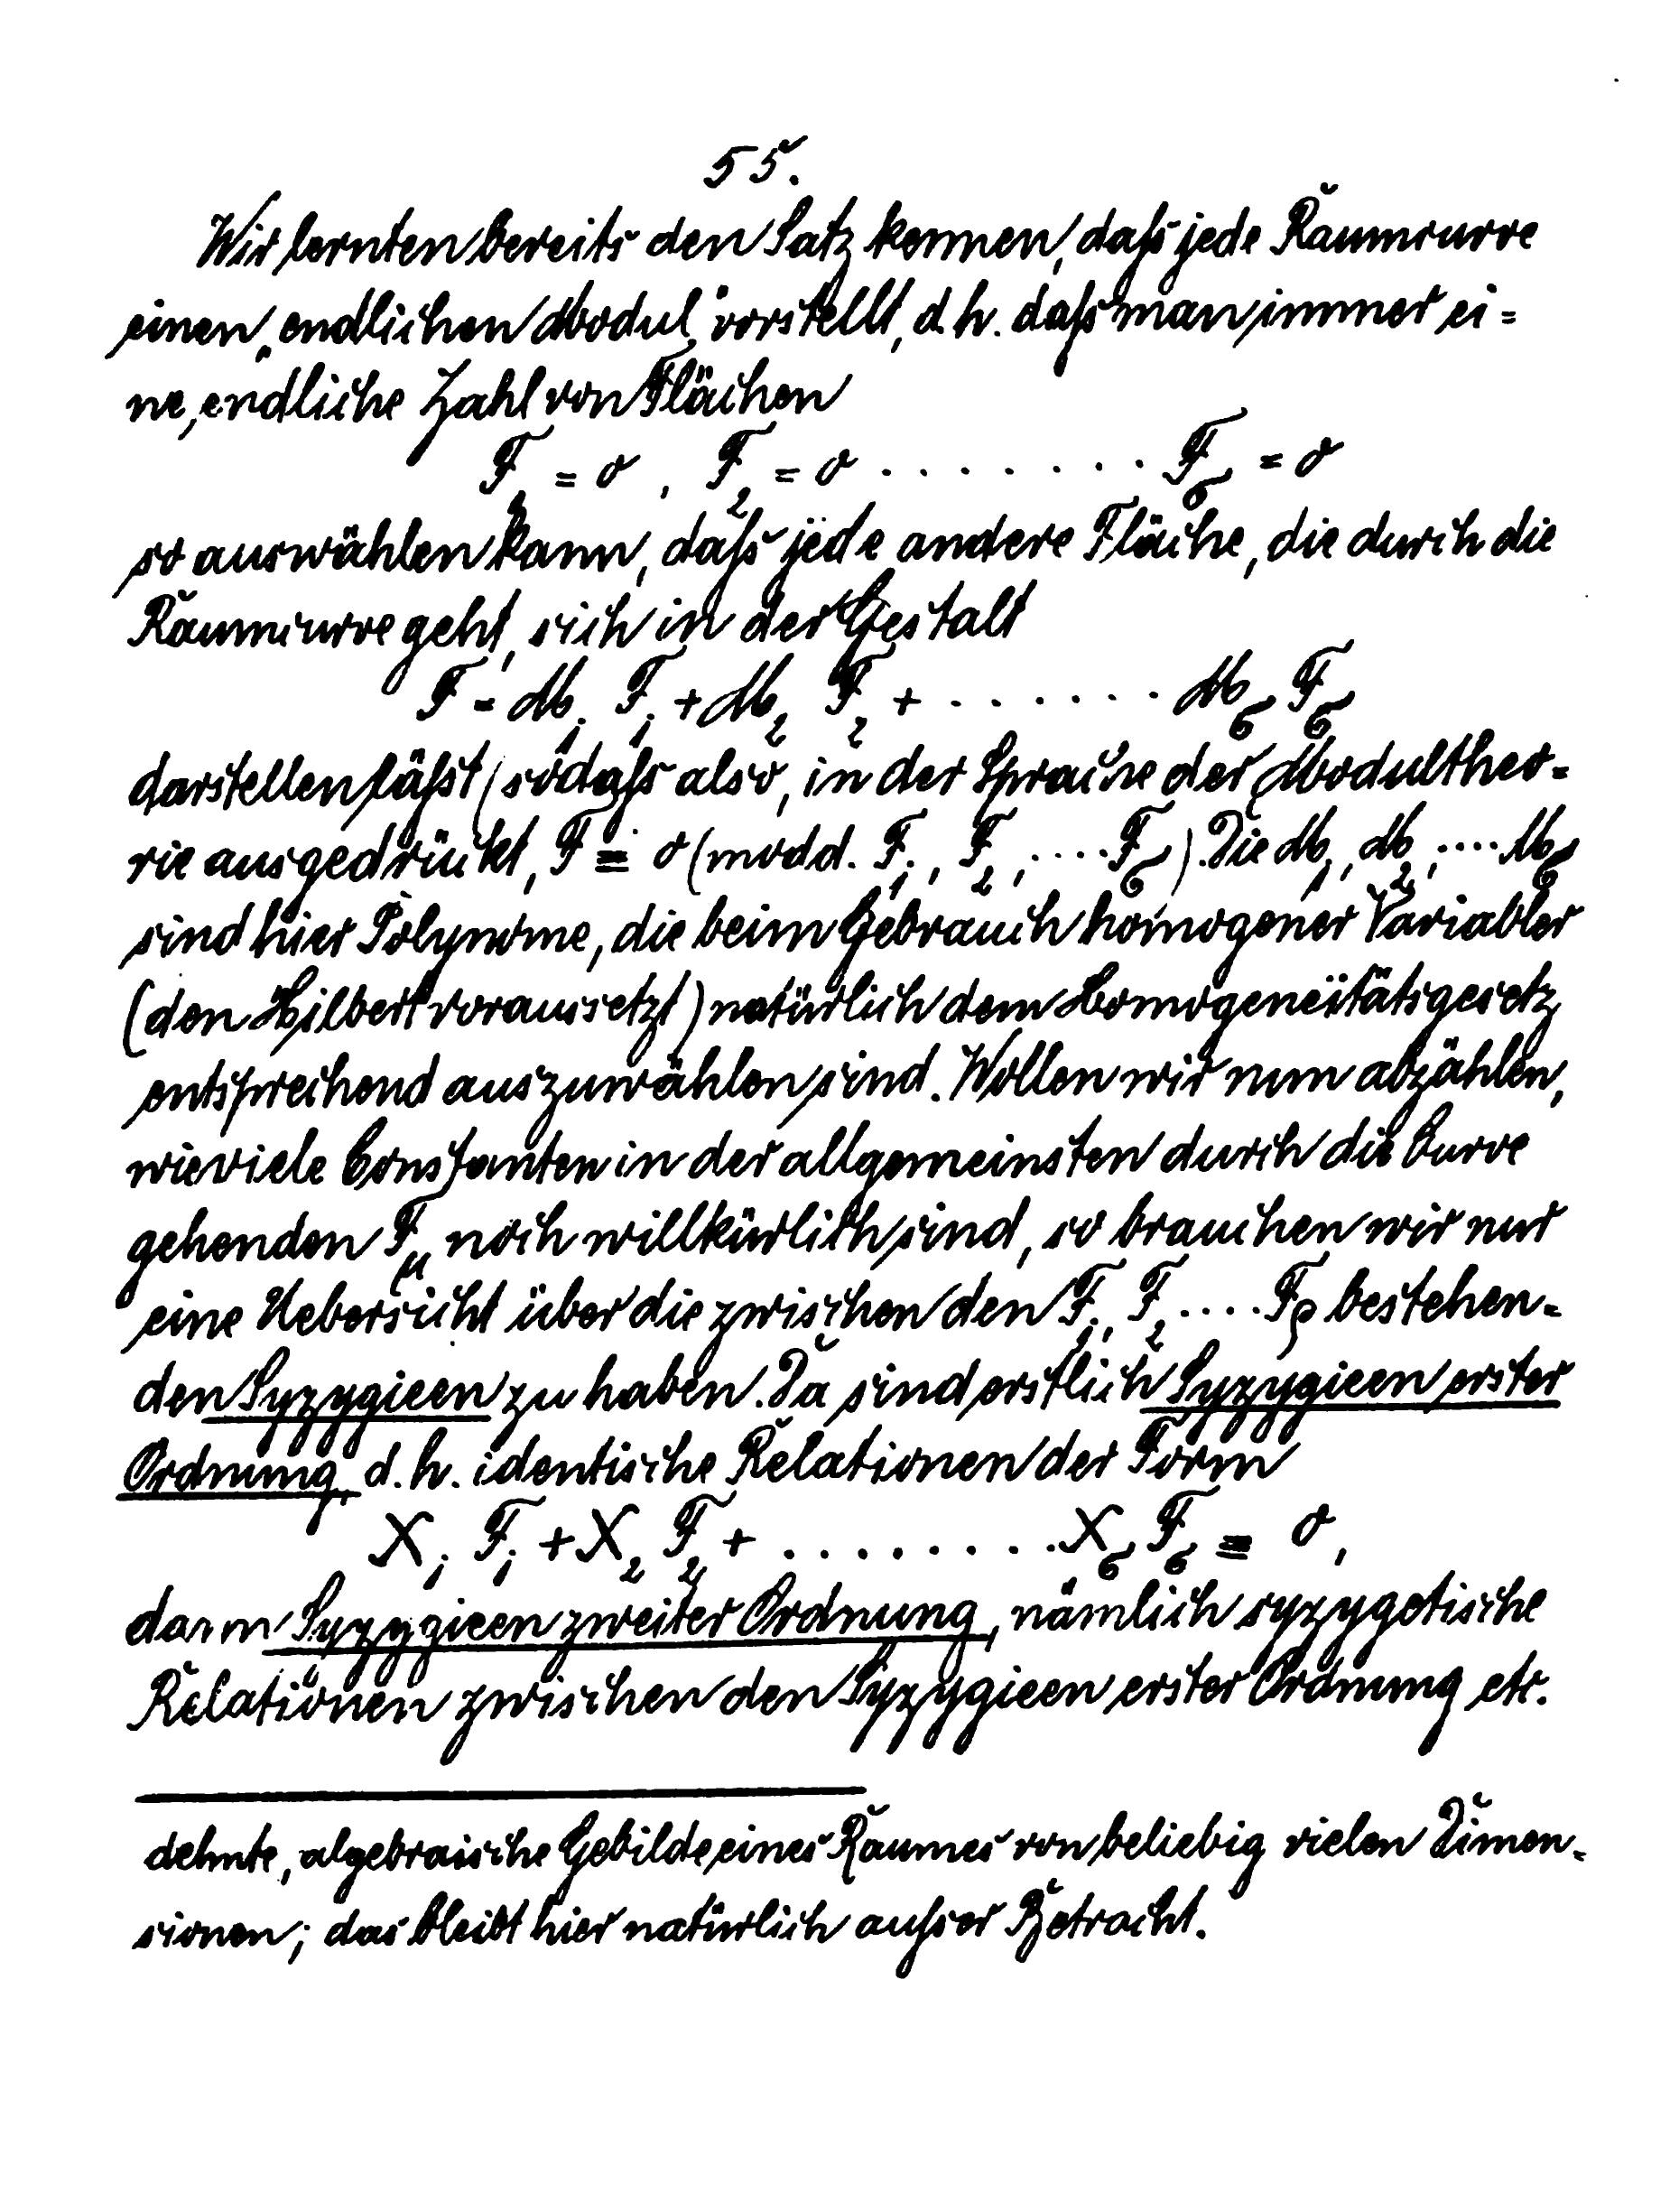 55.
Wir lernten bereits den Satz kennen, daß jede Raumcurve
einen „endlichen Modul“ vorstellt, d.h. daß man immer ei=
ne, endliche Zahl von Flächen
F₁ = 0, F₂ = 0 . . . . . . . . F_σ = 0
so auswählen kann, daß jede andere Fläche, die durch die
Raumcurve geht, sich in der Gestalt
F = M₁ F₁ + M₂ F₂ + . . . . . . . M_σ F_σ
darstellen läßt (sodaß also, in der Sprache der Modultheo=
rie ausgedrückt, F ≡ 0 (modd. F₁, F₂, .... F_σ). Die M₁, M₂, .... M_σ
sind hier Polynome, die beim Gebrauch homogener Variabler
(den Hilbert voraussetzt) natürlich dem Homogeneitätsgesetz
entsprechend auszuwählen sind. Wollen wir nun abzählen,
wieviele Constanten in der allgemeinsten durch die Curve
gehenden F_μ noch willkürlich sind, so brauchen wir nur
eine Uebersicht über die zwischen den F₁, F₂ .... F_ρ bestehen=
den Syzygieen zu haben. Da sind erstlich Syzygieen erster
Ordnung, d.h. identische Relationen der Form
X₁ F₁ + X₂ F₂ + . . . . . . . . . X_σ F_σ ≡ 0,
dann Syzygieen zweiter Ordnung, nämlich syzygetische
Relationen zwischen den Syzygieen erster Ordnung etc.
dehnte, algebraische Gebilde eines Raumes von beliebig vielen Dimen=
sionen; das bleibt hier natürlich außer Betracht.